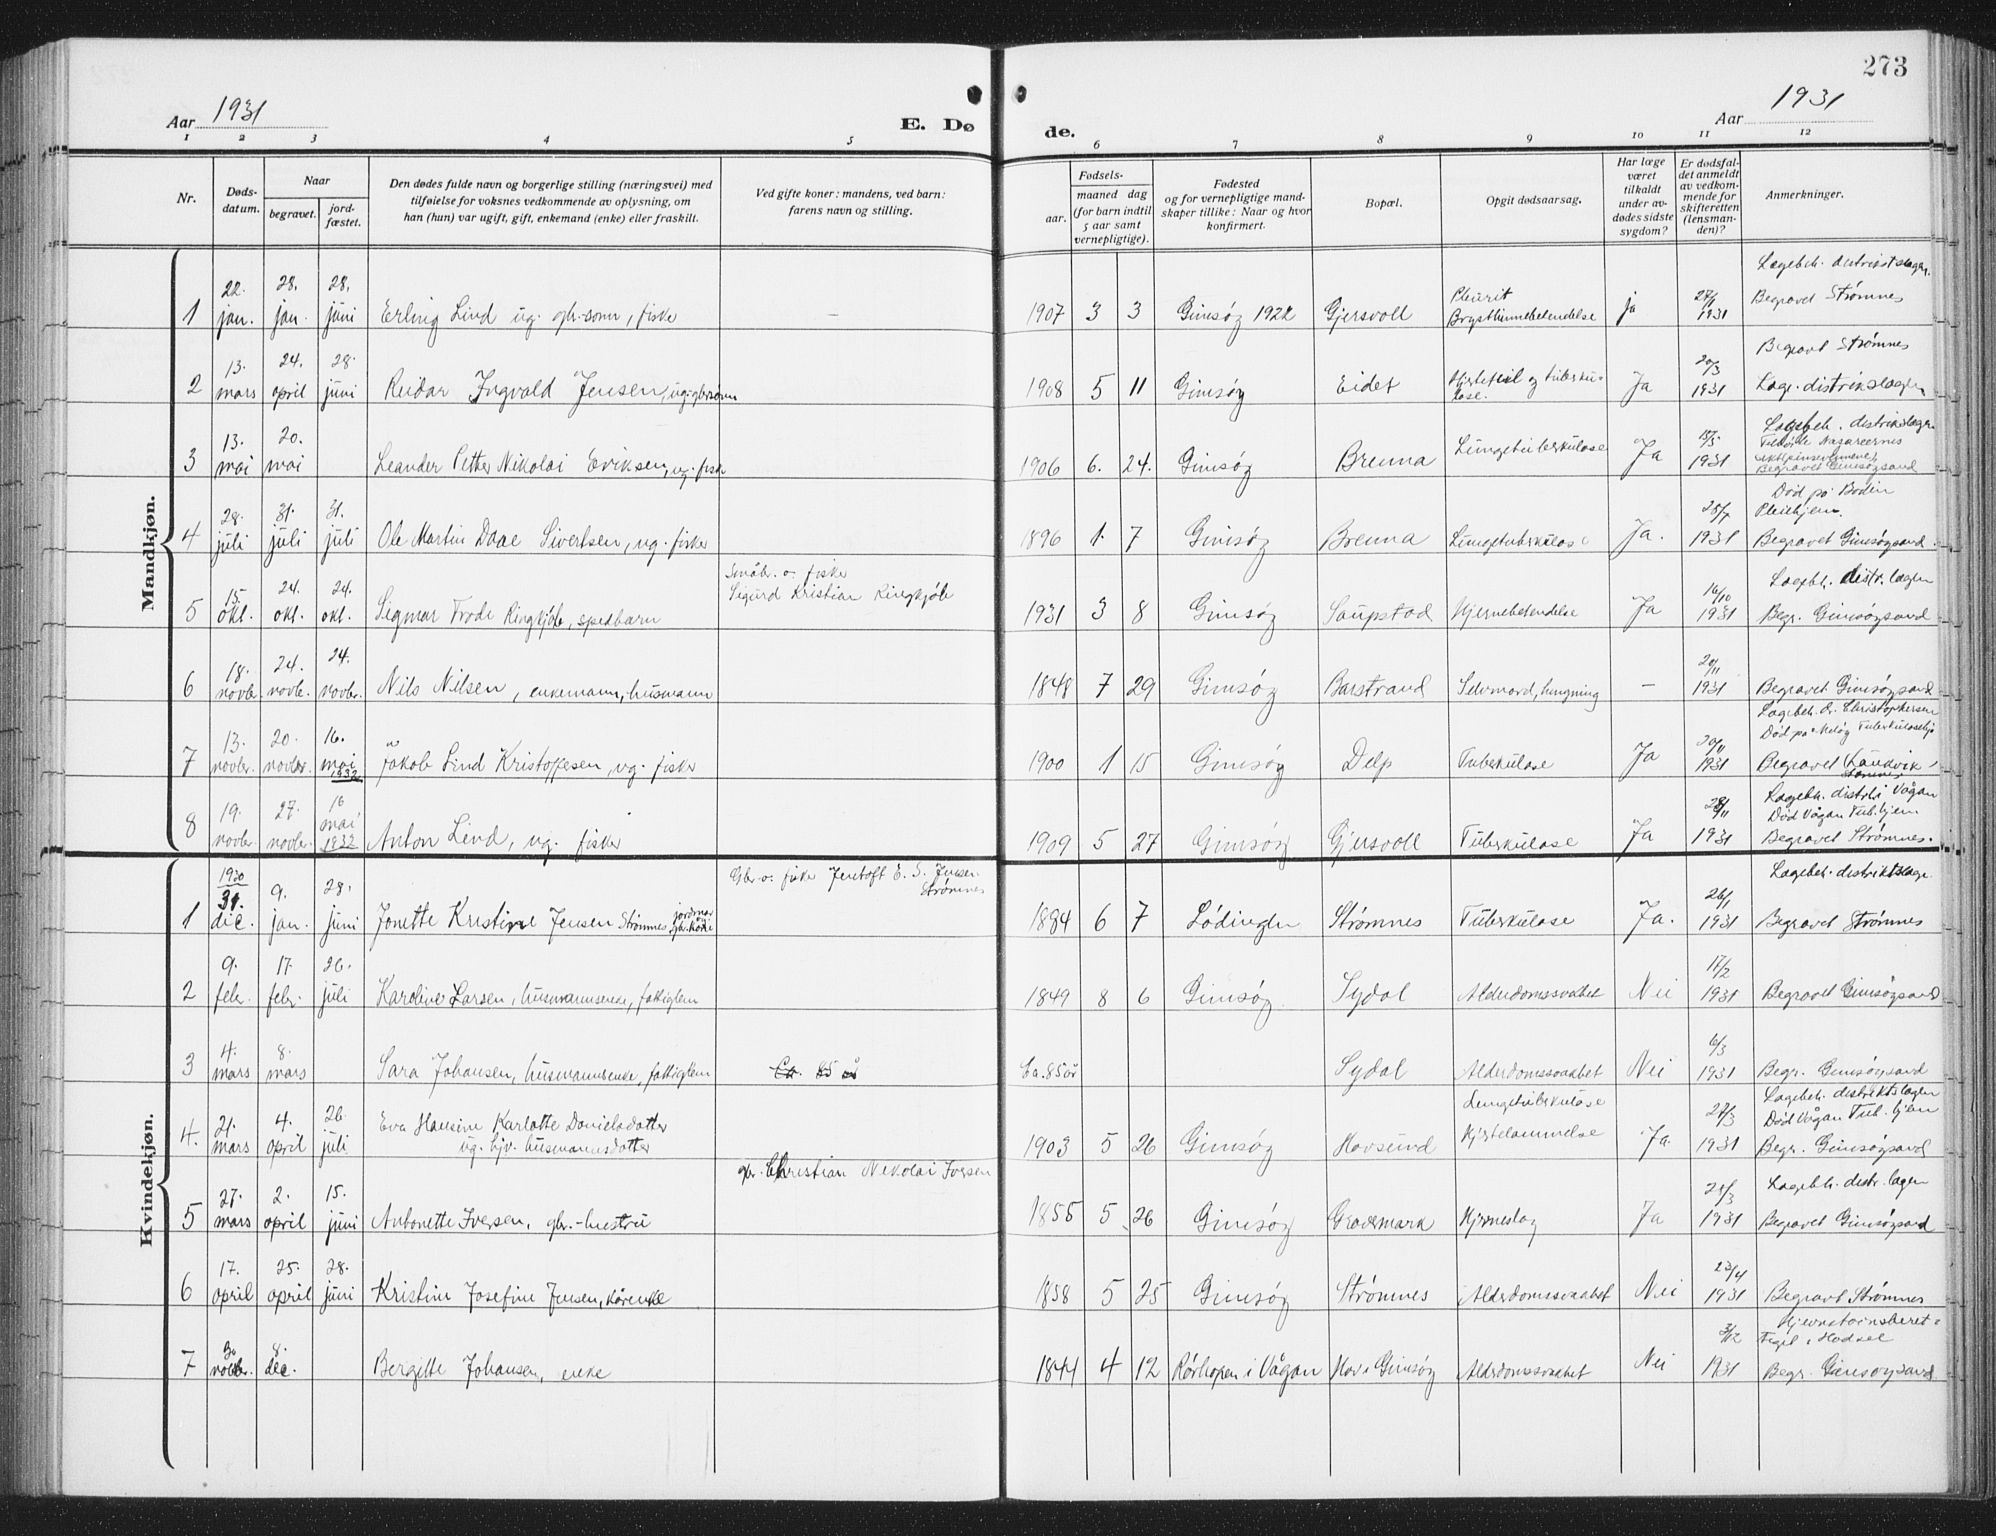 273
Aar 1931
E. Dø
de.
Aar 1931
1 2 3 4 5 6 7 8 9 10 11 12
Nr.
Døds-
datum.
Naar
begravet.
jord-
fæstet.
Den dødes fulde navn og borgerlige stilling (næringsvei) med
tilføielse for voksnes vedkommende av oplysning, om
han (hun) var ugift, gift, enkemand (enke) eller fraskilt.
Ved gifte koner: mandens, ved barn:
farens navn og stilling.
Fødsels-
aar.
maaned dag
(for barn indtil
5 aar samt
vernepligtige).
Fødested
og for vernepligtige mand-
skaper tillike: Naar og hvor
konfirmert.
Bopæl.
Opgit dødsaarsag.
Har læge
været
tilkaldt
under av-
dødes sidste
sygdom?
Er dødsfal-
det anmeldt
av vedkom-
mende for
skifteretten
(lensman-
den)?
Anmerkninger.
Mandkjøn.
1 22. jan. 28. jan. 28. juni Erling Lind ug. gbr-sønn, fisker – 1907 3 3 Gimsøy 1922 Gjersvoll Pleurit Brysthinnebetendelse ja 27/1 1931 Lægebeh. distriktslægen Begravet Strømnes
2 13. mars 24. april 28. juni Reidar Ingvald Jensen, ug. gbrsønn 1908 5 11 Gimsøy Eidet Hjertefeil og tuberku-
lose. Ja 20/3 1931 Begravt Strømnes Læge. distriktslægen
3 13. mai 20. mai Leander Petter Nikolai Eriksen, ug. fisker 1906 6. 24. Gimsøy Brenna Lungetuberkulose Ja 15/5 1931 Lægebeh. distriktslægen Begravet Gimsøysand
4 28. juli 31. juli 31. juli Ole Martin Daae Sivertsen, ug. fisker 1896 1. 7 Gimsøy Brenna Lungetuberkulose Ja. 28/7 1931 Død på Bodin Pleiehjem. Begravet Gimsøysand.
5 15. okt. 24. okt. 24. okt. Segmar Frode Ringkjøb, spedbarn Småbr. o. fisker Sigurd Kristian Ringkjøb 1931 3 8 Gimsøy Saupstad Hjernebetendelse Ja 16/10 1931 Lægebh. distr.lægen Begr. Gimsøysand
6 18. novbr. 24. novbr. 24. novbr. Nils Nilsen, enkemann, husmann 1848 7 29 Gimsøy Barstrand Selvmord, hengning – 20/11 1931 Begravet Gimsøysand
7 13. novbr. 20. novbr. 16. mai 1932 Jakob Lind Kristoffesen, ug. fisker 1900 1 15 Gimsøy Delp Tuberkulose Ja 20/11 1931 Lægebeh. dr. Christophersen Død på Meløy Tuberkulosehj. Begravet Sandvik
8 19. novbr. 27. novbr. 16 mai 1932 Anton Lind, ug. fisker 1909 5 27 Gimsøy Gjersvoll Tuberkulose Ja 28/11 1931 Lægebeh. distrl. i Vågan Død Vågan Tub.hjem Begravet Strømnes.
Kvindekjøn.
1 1930 31. dec. 9. jan. 28. juni Jonette Kristine Jensen Strømnes jordmor og gbr.kone Gbr. o. fisker Jentoft E. S. Jensen Strømnes 1884 6 7 Lødingen Strømnes Tuberkulose Ja. 26/1 1931 Lægebeh. distriktslæge. Begravet Strømnes
2 9. febr. 17. febr. 26. juli Karoline Larsen, husmannsenke, fattiglem 1849 8 6 Gimsøy. Sydal Alderdomssvakhet Nei 17/2 1931 Begravet Gimsøysand
3 4. mars 8. mars Sara Johansen, husmannsenke, fattiglem Ca. 85 år Ca. 85 år Sydal Alderdomssvakhet Nei 6/3 1931 Begr. Gimsøysand
4. 21. mars 4. april 26. juli Eva Hansine Karlotte Danielsdatter ug. hjv. husmannsdatter 1903 5 26 Gimsøy Hovsund Lungetuberkulose Hjertelammelse Ja. 27/3 1931 Lægebeh. distriktslægen Død Vågan Tub. hjem Begr. Gimsøysand
5 27. mars 2. april 15. juni Antonette Iversen, gbr.-hustru gbr. Christian Nikolai Iversen 1855 5 26 Gimsøy Gravermark Hjerneslag Ja 28/3 1931 Lægebh. distr. lægen Begravet Gimsøysand
6 17. april 25. april 28. juni Kristine Josefine Jensen, kårenke 1858 5 25 Gimsøy Strømnes Alderdomssvakhet Nei 23/4 1931 Begravt Strømnes
7 30 novbr. 8. dec. Bergitte Johansen, enke 1844 4 12 Rørhopen i Vågan Hov i Gimsøy Alderdomssvakhet Nei 3/12 1931 Hjemstavnsberet-
tiget i Hadsel Begr. Gimsøysand